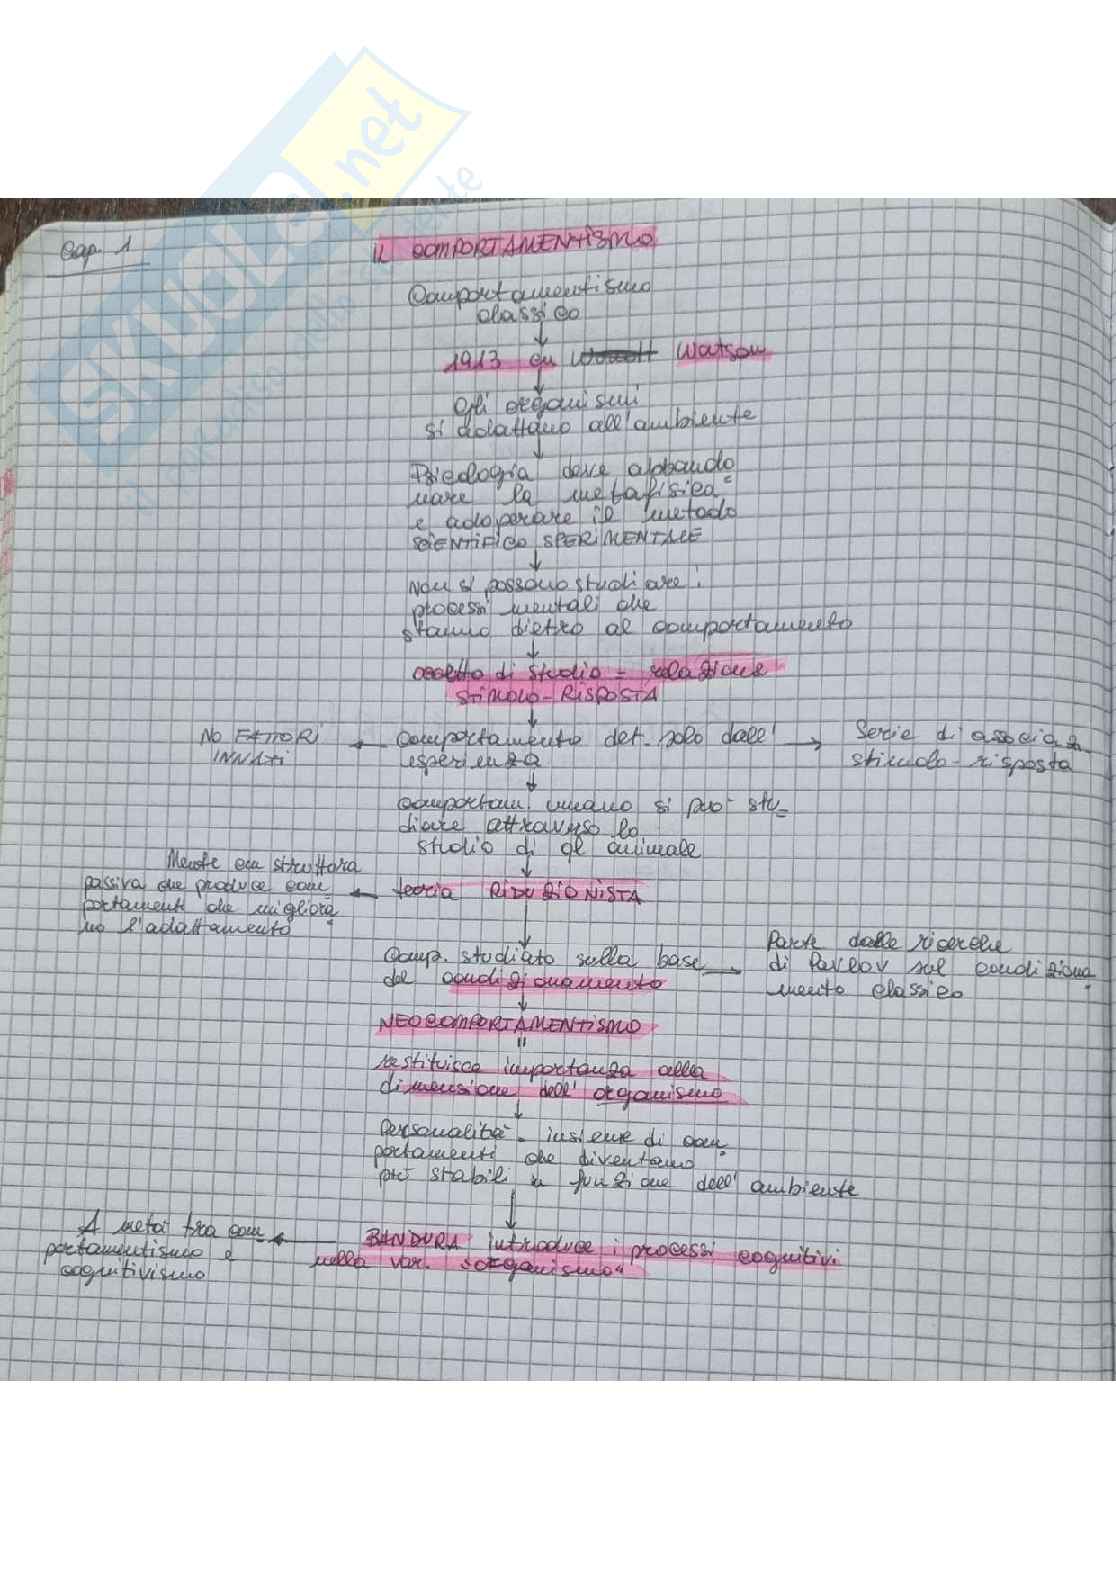 SKUOLA.net
Cap. 1
IL COMPORTAMENTISMO
Comportamentismo
classico
1913 con Watson
Gli organismi
si adattano all'ambiente
Psicologia deve abbando
nare la metafisica
e adoperare il metodo
SCIENTIFICO SPERIMENTALE
Non si possono studiare i
processi mentali che
stanno dietro al comportamento
oggetto di studio = relazione
STIMOLO-RISPOSTA
NO FATTORI
INNATI
Comportamento det. solo dall'
esperienza
Serie di associaz.
stimolo-risposta
Comportam. umano si può stu-
diare attraverso lo
studio di ql animale
Mente con struttura
passiva che produce com
portamenti che migliora
no l'adattamento
teoria RIDUZIONISTA
Comp. studiato sulla base
del condizionamento
Parte dalle ricerche
di Pavlov sul condiziona
mento classico
NEOCOMPORTAMENTISMO
=
restituisce importanza alla
dimensione dell'organismo
Personalità - insieme di com
portamenti che diventano
più stabili in funzione dell'ambiente
A metà tra com
portamentismo e
cognitivismo
BANDURA: introduce i processi cognitivi
nella var. "organismo"